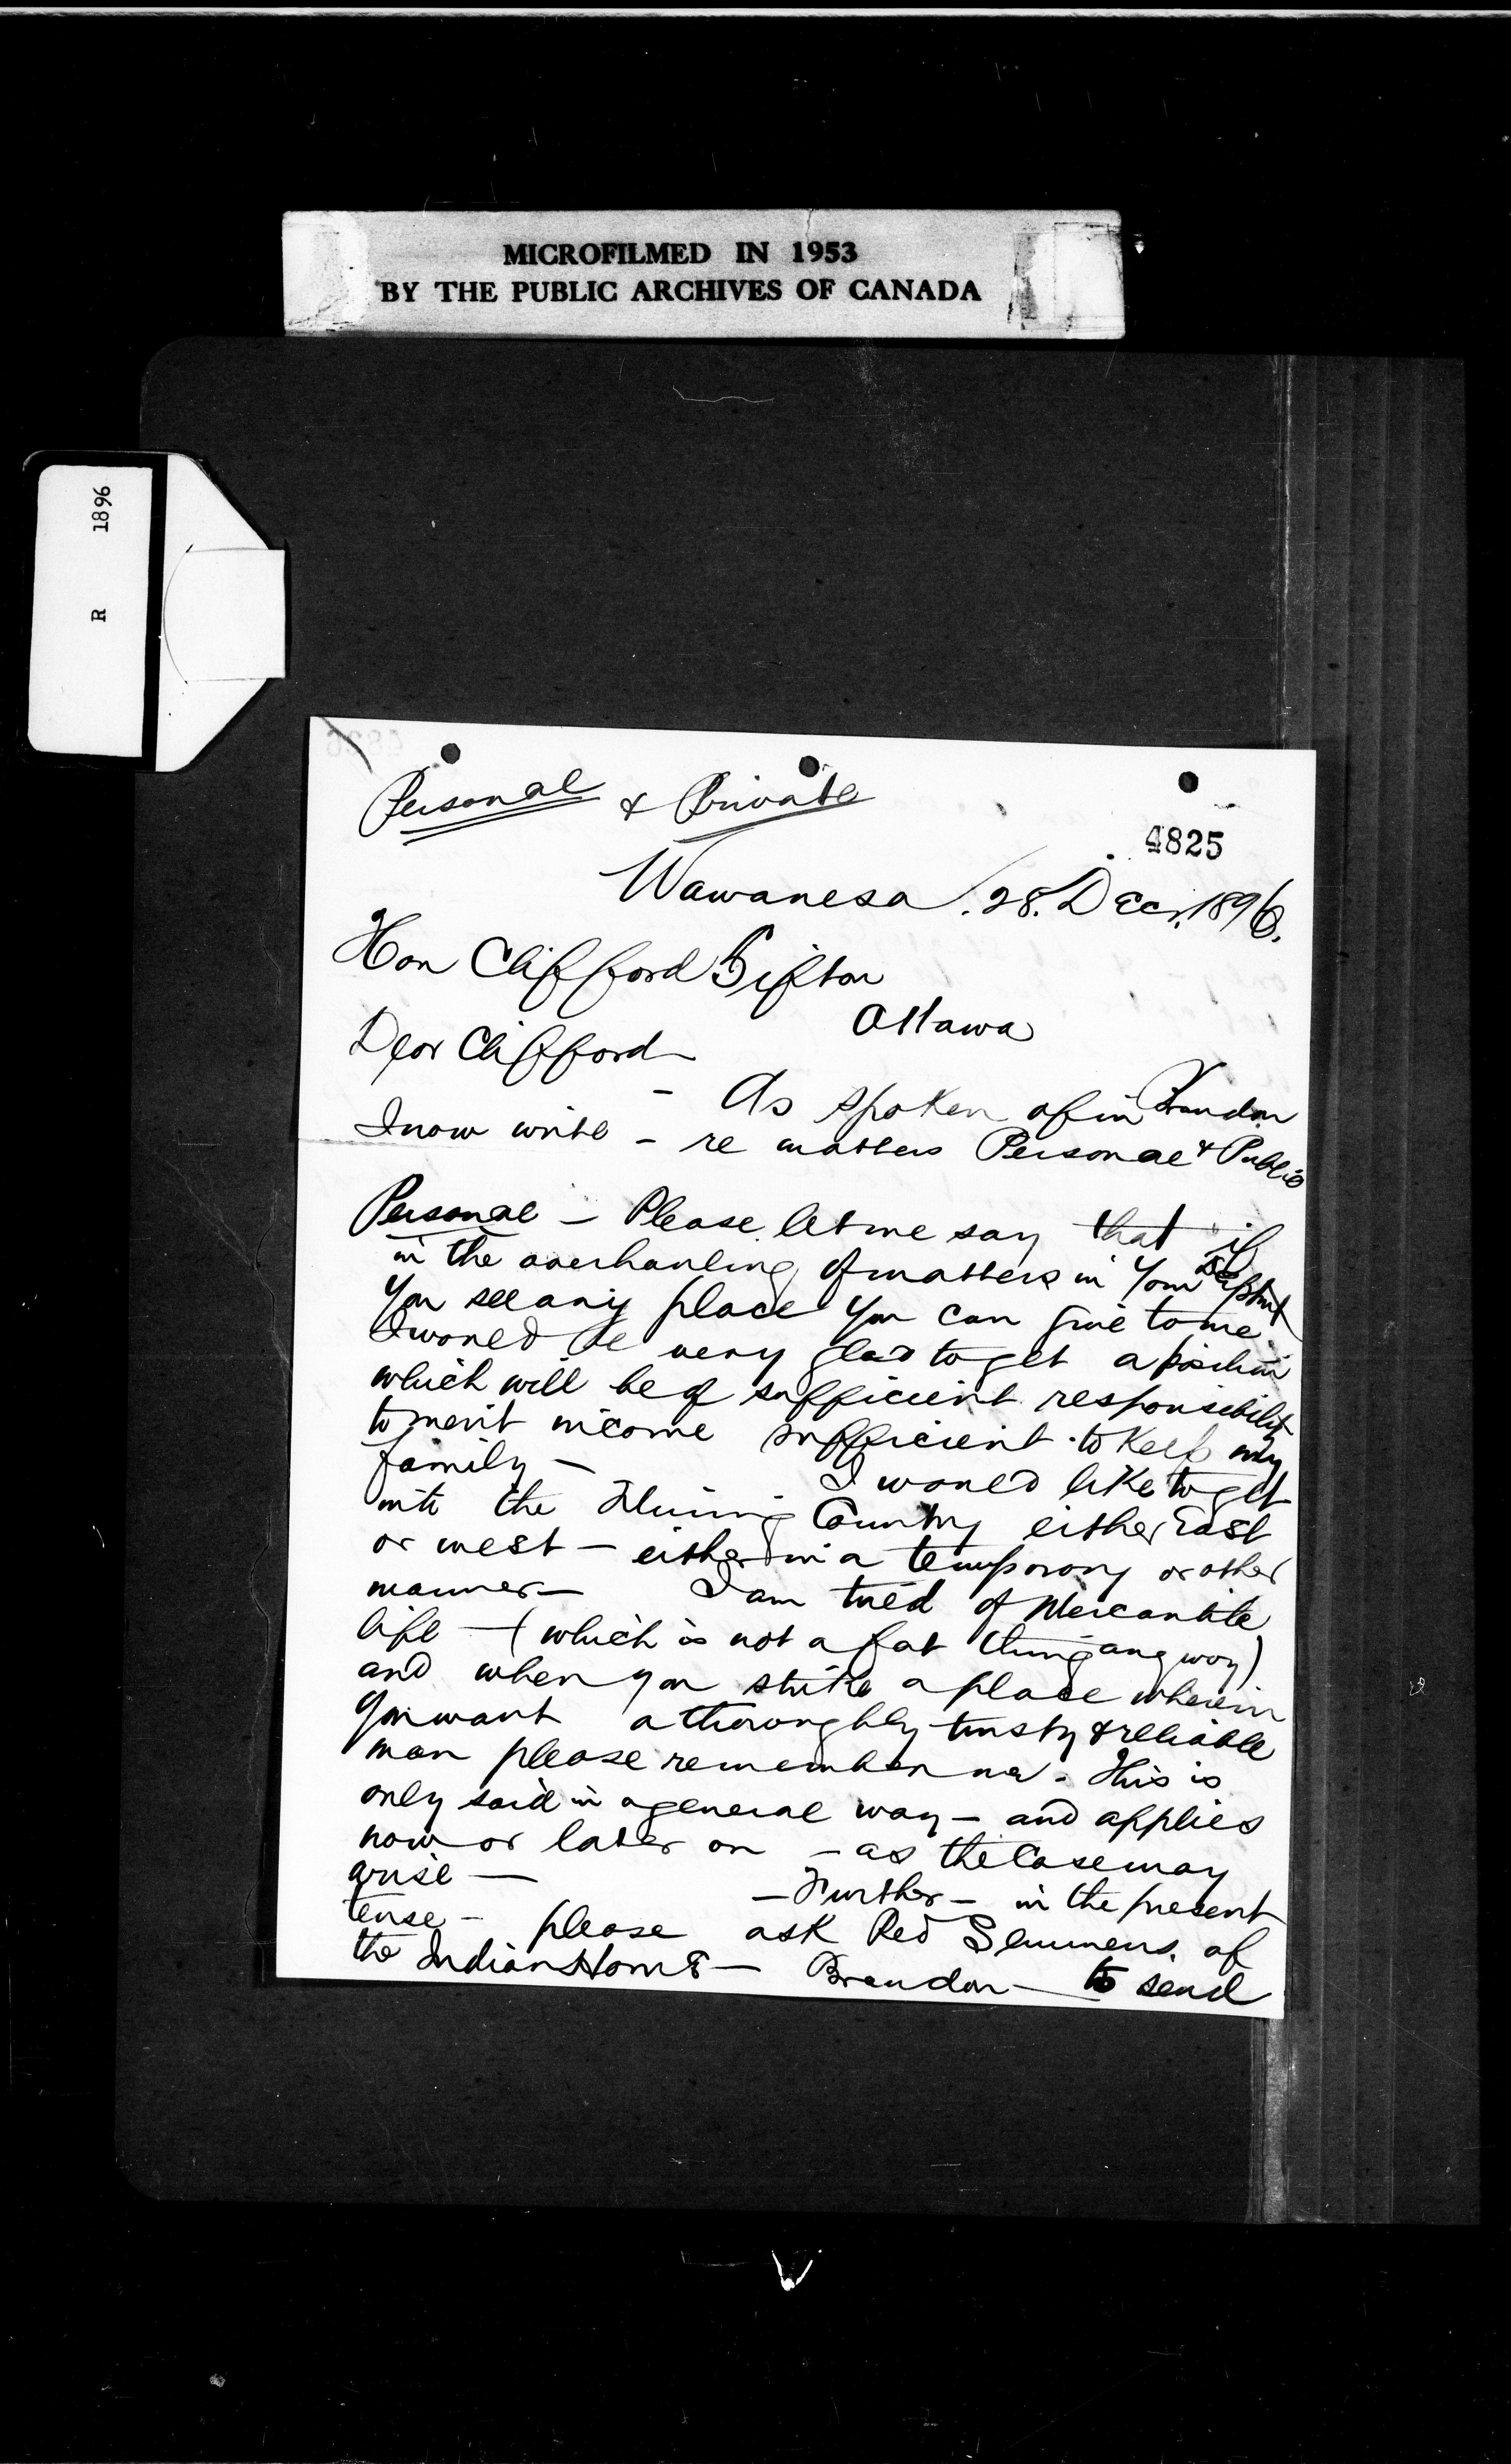 MICROFILMED IN 1953
BY THE PUBLIC ARCHIVES OF CANADA
R 1896
Personal & Private
4825
Wawanesa. 28. Dec. 1896.
Hon Clifford Sifton
Ottawa
Dear Clifford
- As spoken of in Brandon
I now write - re matters Personal & Public
Personal - Please let me say that if
in the overhauling of matters in your Deptmt
you see any place you can give to me.
I would be very glad to get a position
which will be of sufficient responsibility
to merit income sufficient to keep my
family - I would like to get
into the Mining Country either East
or west - either in a temporary or other
manner - I am tired of Mercantile
life - (which is not a fat thing anyway)
and when you strike a place wherein
you want a thoroughly trusty & reliable
man please remember me. This is
only said in a general way - and applies
now or later on - as the Case may
arise -
- Further - in the present
tense - please ask Rev Semmens. of
the Indian Home - Brandon - to send